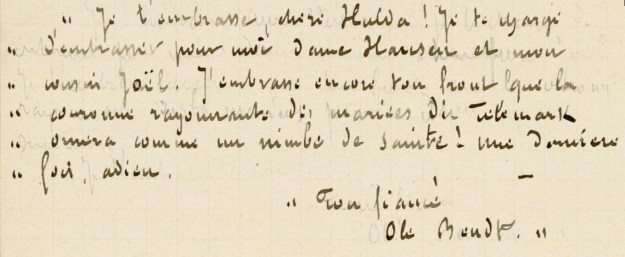 " Je t'embrasse, chère Hulda ! Je te charge
" d'embrasser pour moi dame Hansen et mon
" cousin Joël. J'embrasse encore ton front que la
" couronne rayonnante des mariées du Telemark
" ornera comme un nimbe de sainte ! Une dernière
" fois, adieu. —
" Ton fiancé
Ole Kamp. "